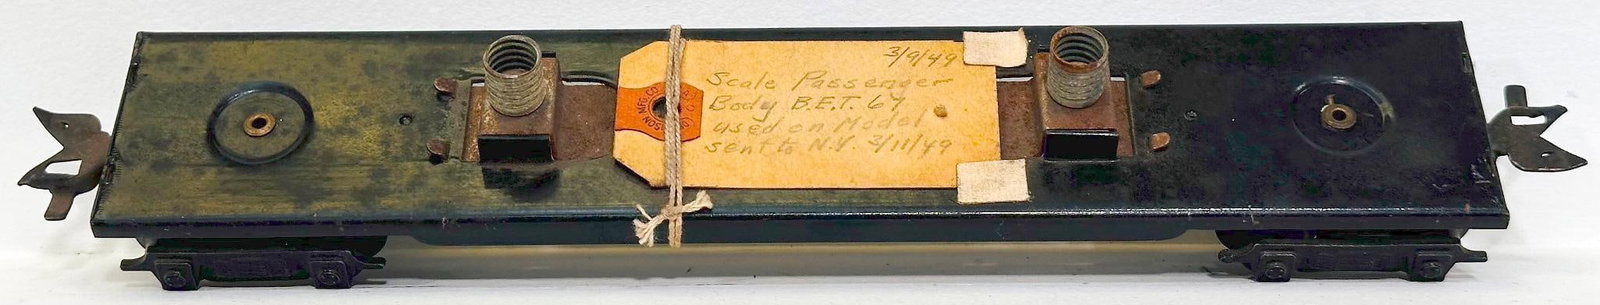 3/9/49
Scale Passenger
Body B.E.T. 67
used on Model
sent to N.Y. 3/11/49